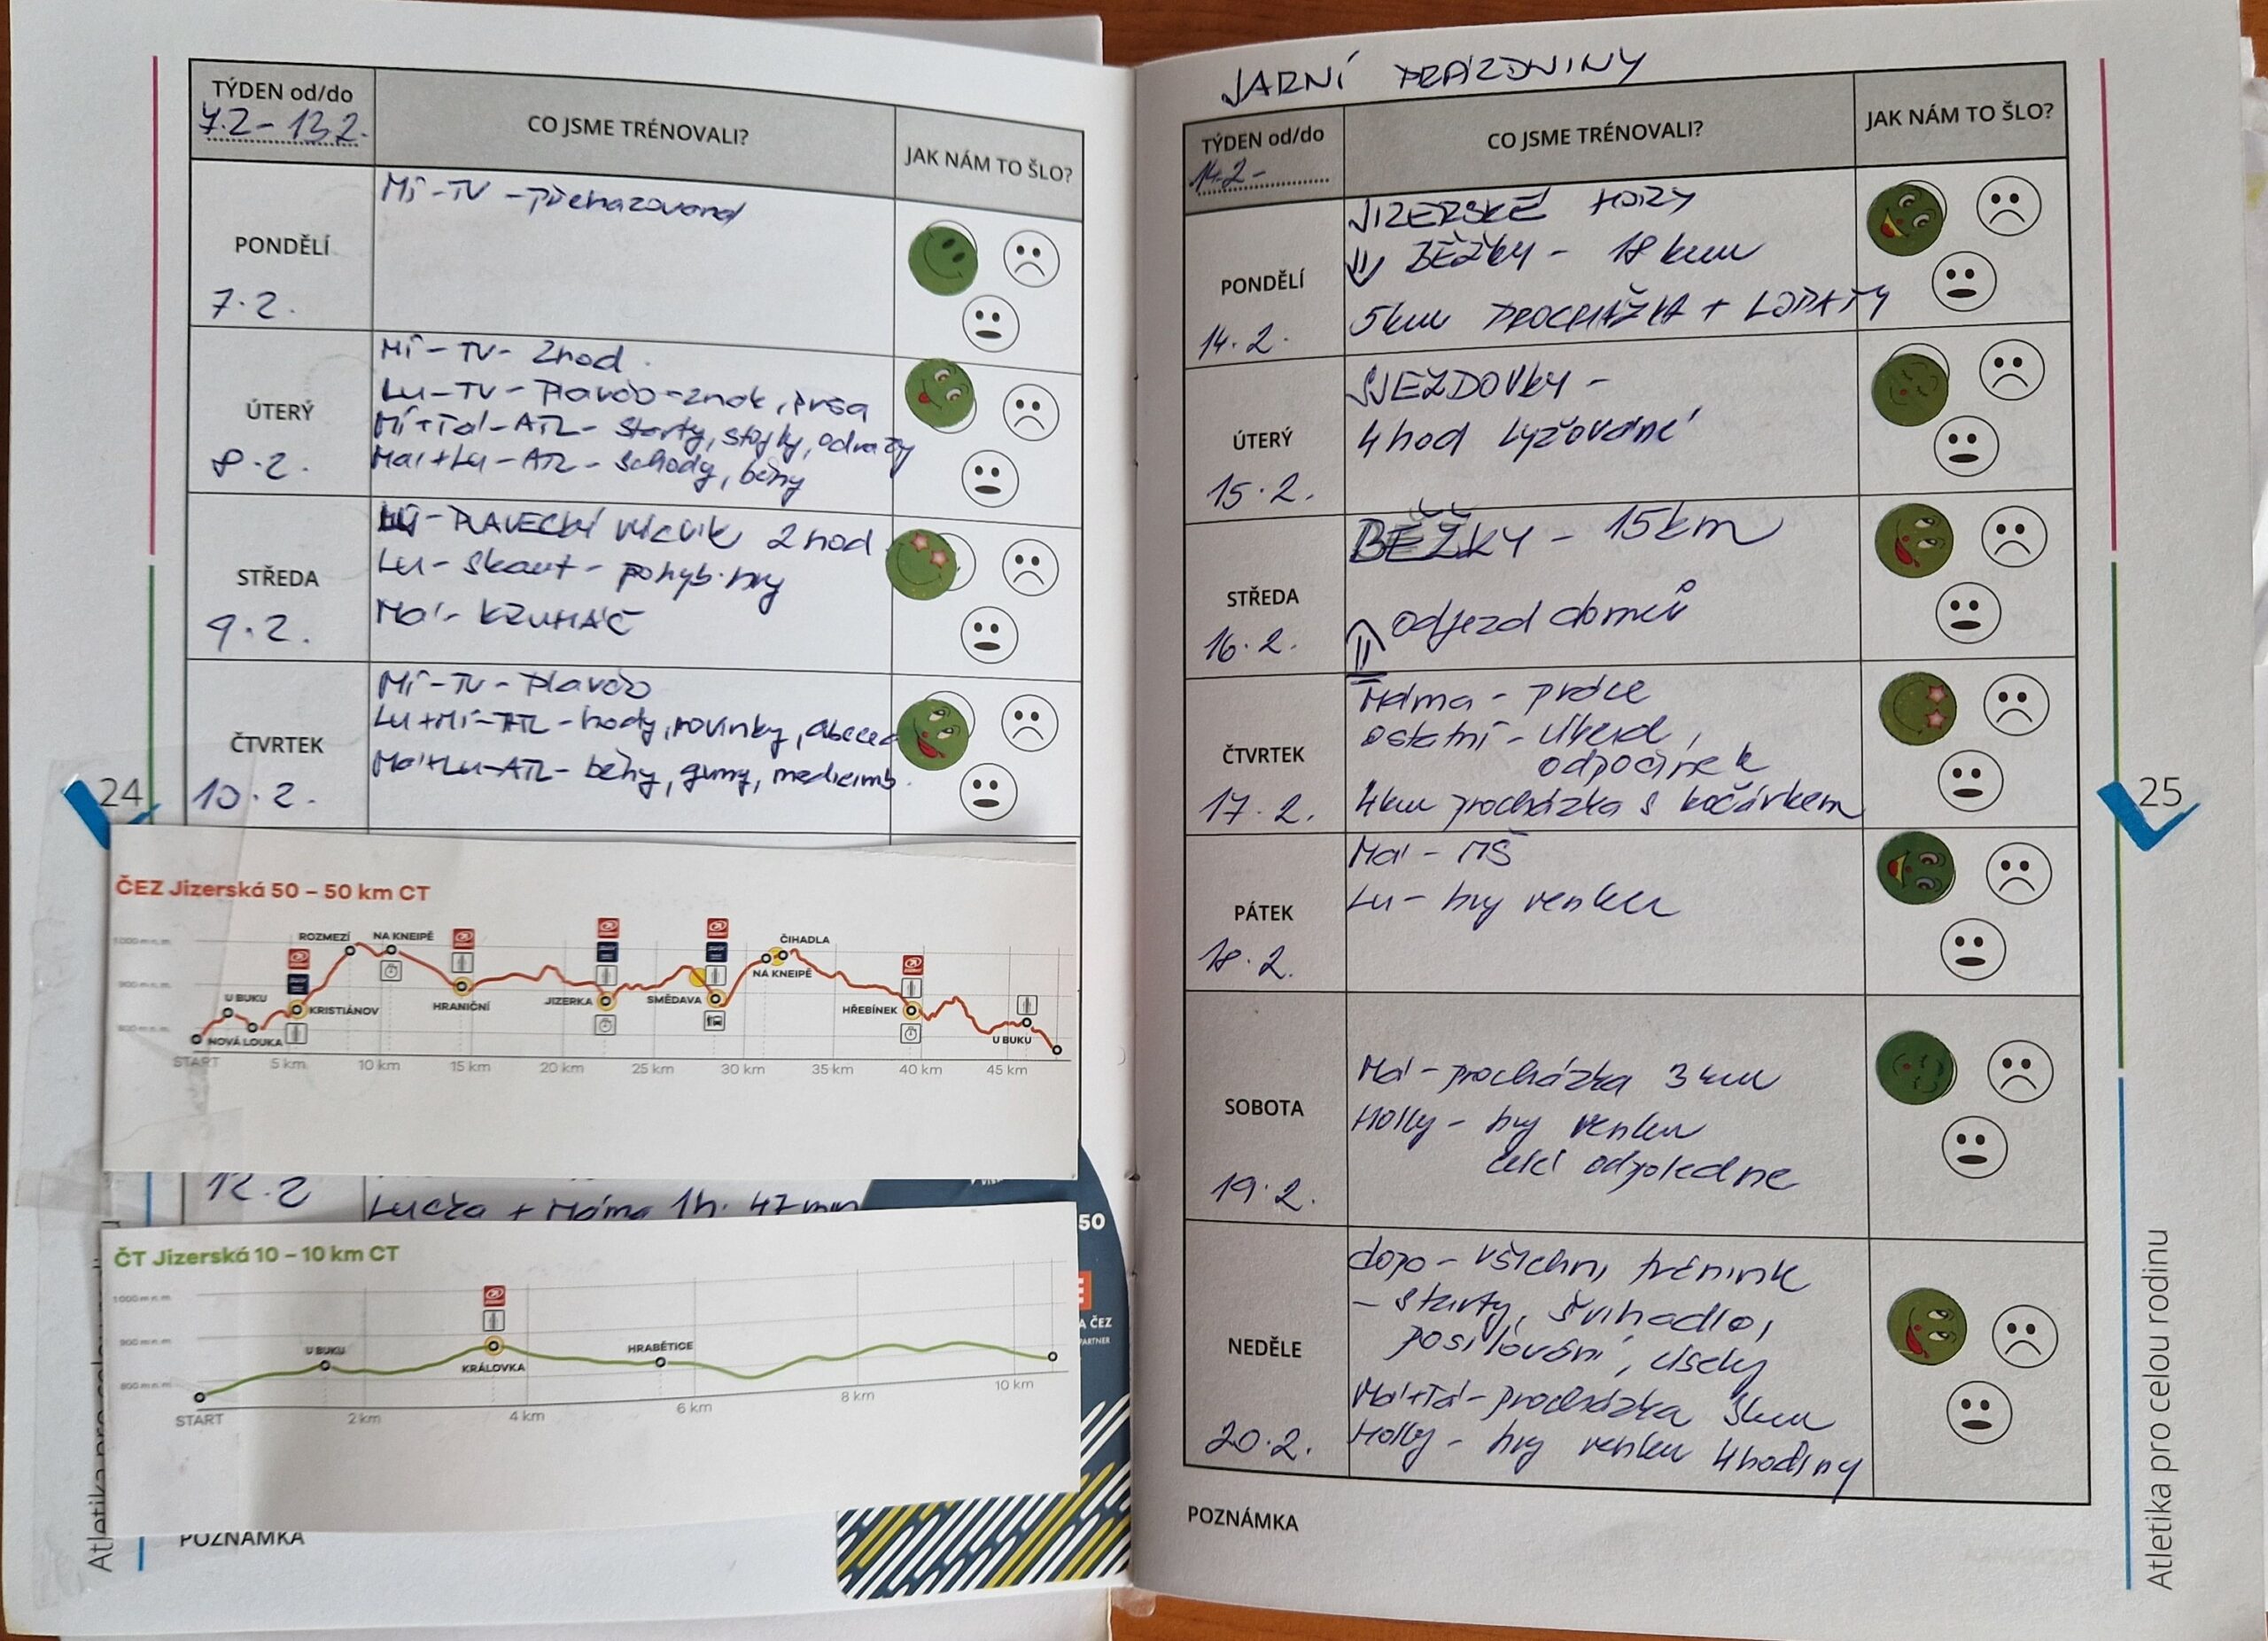 TÝDEN od/do
7.2 - 13.2.
CO JSME TRÉNOVALI?
JAK NÁM TO ŠLO?
PONDĚLÍ
7.2.
Mi - TV - přehazovaná
ÚTERÝ
8.2.
Mi - TV - 2hod.
Lu - TV - Plaváo - znak, prsa
Mi+Tal - ATL - starty, stojky, odrazy
Mai+Lu - ATL - schody, běhy
STŘEDA
9.2.
- PLAVECKÝ výcvik 2hod
Lu - Skaut - pohyb. hry
Má - KRUHÁČ
ČTVRTEK
10.2.
Mi - TV - Plaváo
Lu+Mi - ATL - hody, rovinky, abeced
Má+Lu - ATL - běhy, gumy, medicimb.
24
ČEZ Jizerská 50 – 50 km CT
1000 m n. m.
900 m n. m.
800 m n. m.
ROZMEZÍ
NA KNEIPĚ
ČIHADLA
NA KNEIPĚ
U BUKU
KRISTIÁNOV
HRANIČNÍ
JIZERKA
SMĚDAVA
HŘEBÍNEK
NOVÁ LOUKA
U BUKU
START
5 km
10 km
15 km
20 km
25 km
30 km
35 km
40 km
45 km
12.2
Lucka + Máma 1h. 47 min
50
ČT Jizerská 10 – 10 km CT
1000 m n. m.
900 m n. m.
800 m n. m.
U BUKU
KRÁLOVKA
HRABĚTICE
START
2 km
4 km
6 km
8 km
10 km
A ČEZ
PARTNER
POZNÁMKA
JARNÍ PRÁZDNINY
TÝDEN od/do
14.2 -
CO JSME TRÉNOVALI?
JAK NÁM TO ŠLO?
PONDĚLÍ
14.2.
JIZERSKÉ HORY
BĚŽKY - 18 km
5km PROCHÁZKA + LOPATY
ÚTERÝ
15.2.
SJEZDOVKY -
4 hod lyžování
STŘEDA
16.2.
BĚŽKY - 15km
odjezd domů
ČTVRTEK
17.2.
Máma - práce
ostatní - úklid,
odpočinek
4km procházka s kočárkem
PÁTEK
18.2.
Má - MŠ
Lu - hry venku
SOBOTA
19.2.
Má - procházka 3 km
Holly - hry venku
celé odpoledne
NEDĚLE
20.2.
dopo - všichni trénink
- starty, švihadlo,
posilování, úseky
Má+Tá - procházka 3km
Holly - hry venku 4 hodiny
POZNÁMKA
25
Atletika pro celou rodinu